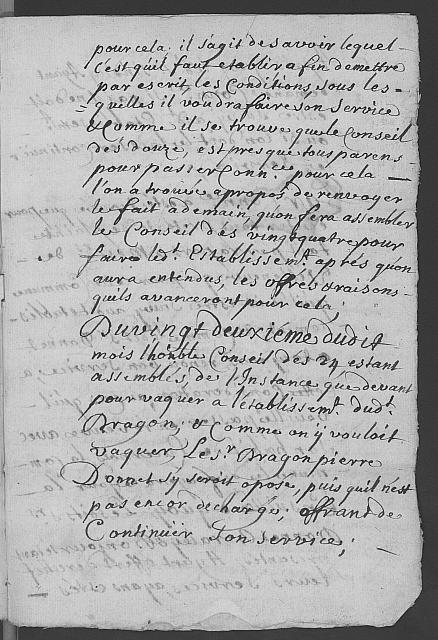 pour cela. il s'agit de savoir lequel
c'est qu'il faut etablir a fin de mettre
par escrit, les Conditions, sous les-
quelles il voudra faire son service
& Comme il se trouve que le Conseil
des douze, est presque tous parens-
pour passer Conn.ce pour cela
l'on a trouve a propos de renvoyer
le fait a demain, qu'on fera assembler
le Conseil des vingt quatre pour
faire led.t Establissem.t après qu'on
aura entendus, les offres & raisons-
quils avanceront pour cela,
Du vingt deuxieme dudit
mois l'honble Conseil des 24 estant
assemblés, de l'Instance que devant
pour vaquer a l'établissem.t dud.t
Dragon, & Comme on y vouloit
vaquer, Le s.r Dragon pierre
Donnet s'y seroit oposé, puis qu'il n'est
pas encor dechargé; offrant de
Continuer son service;